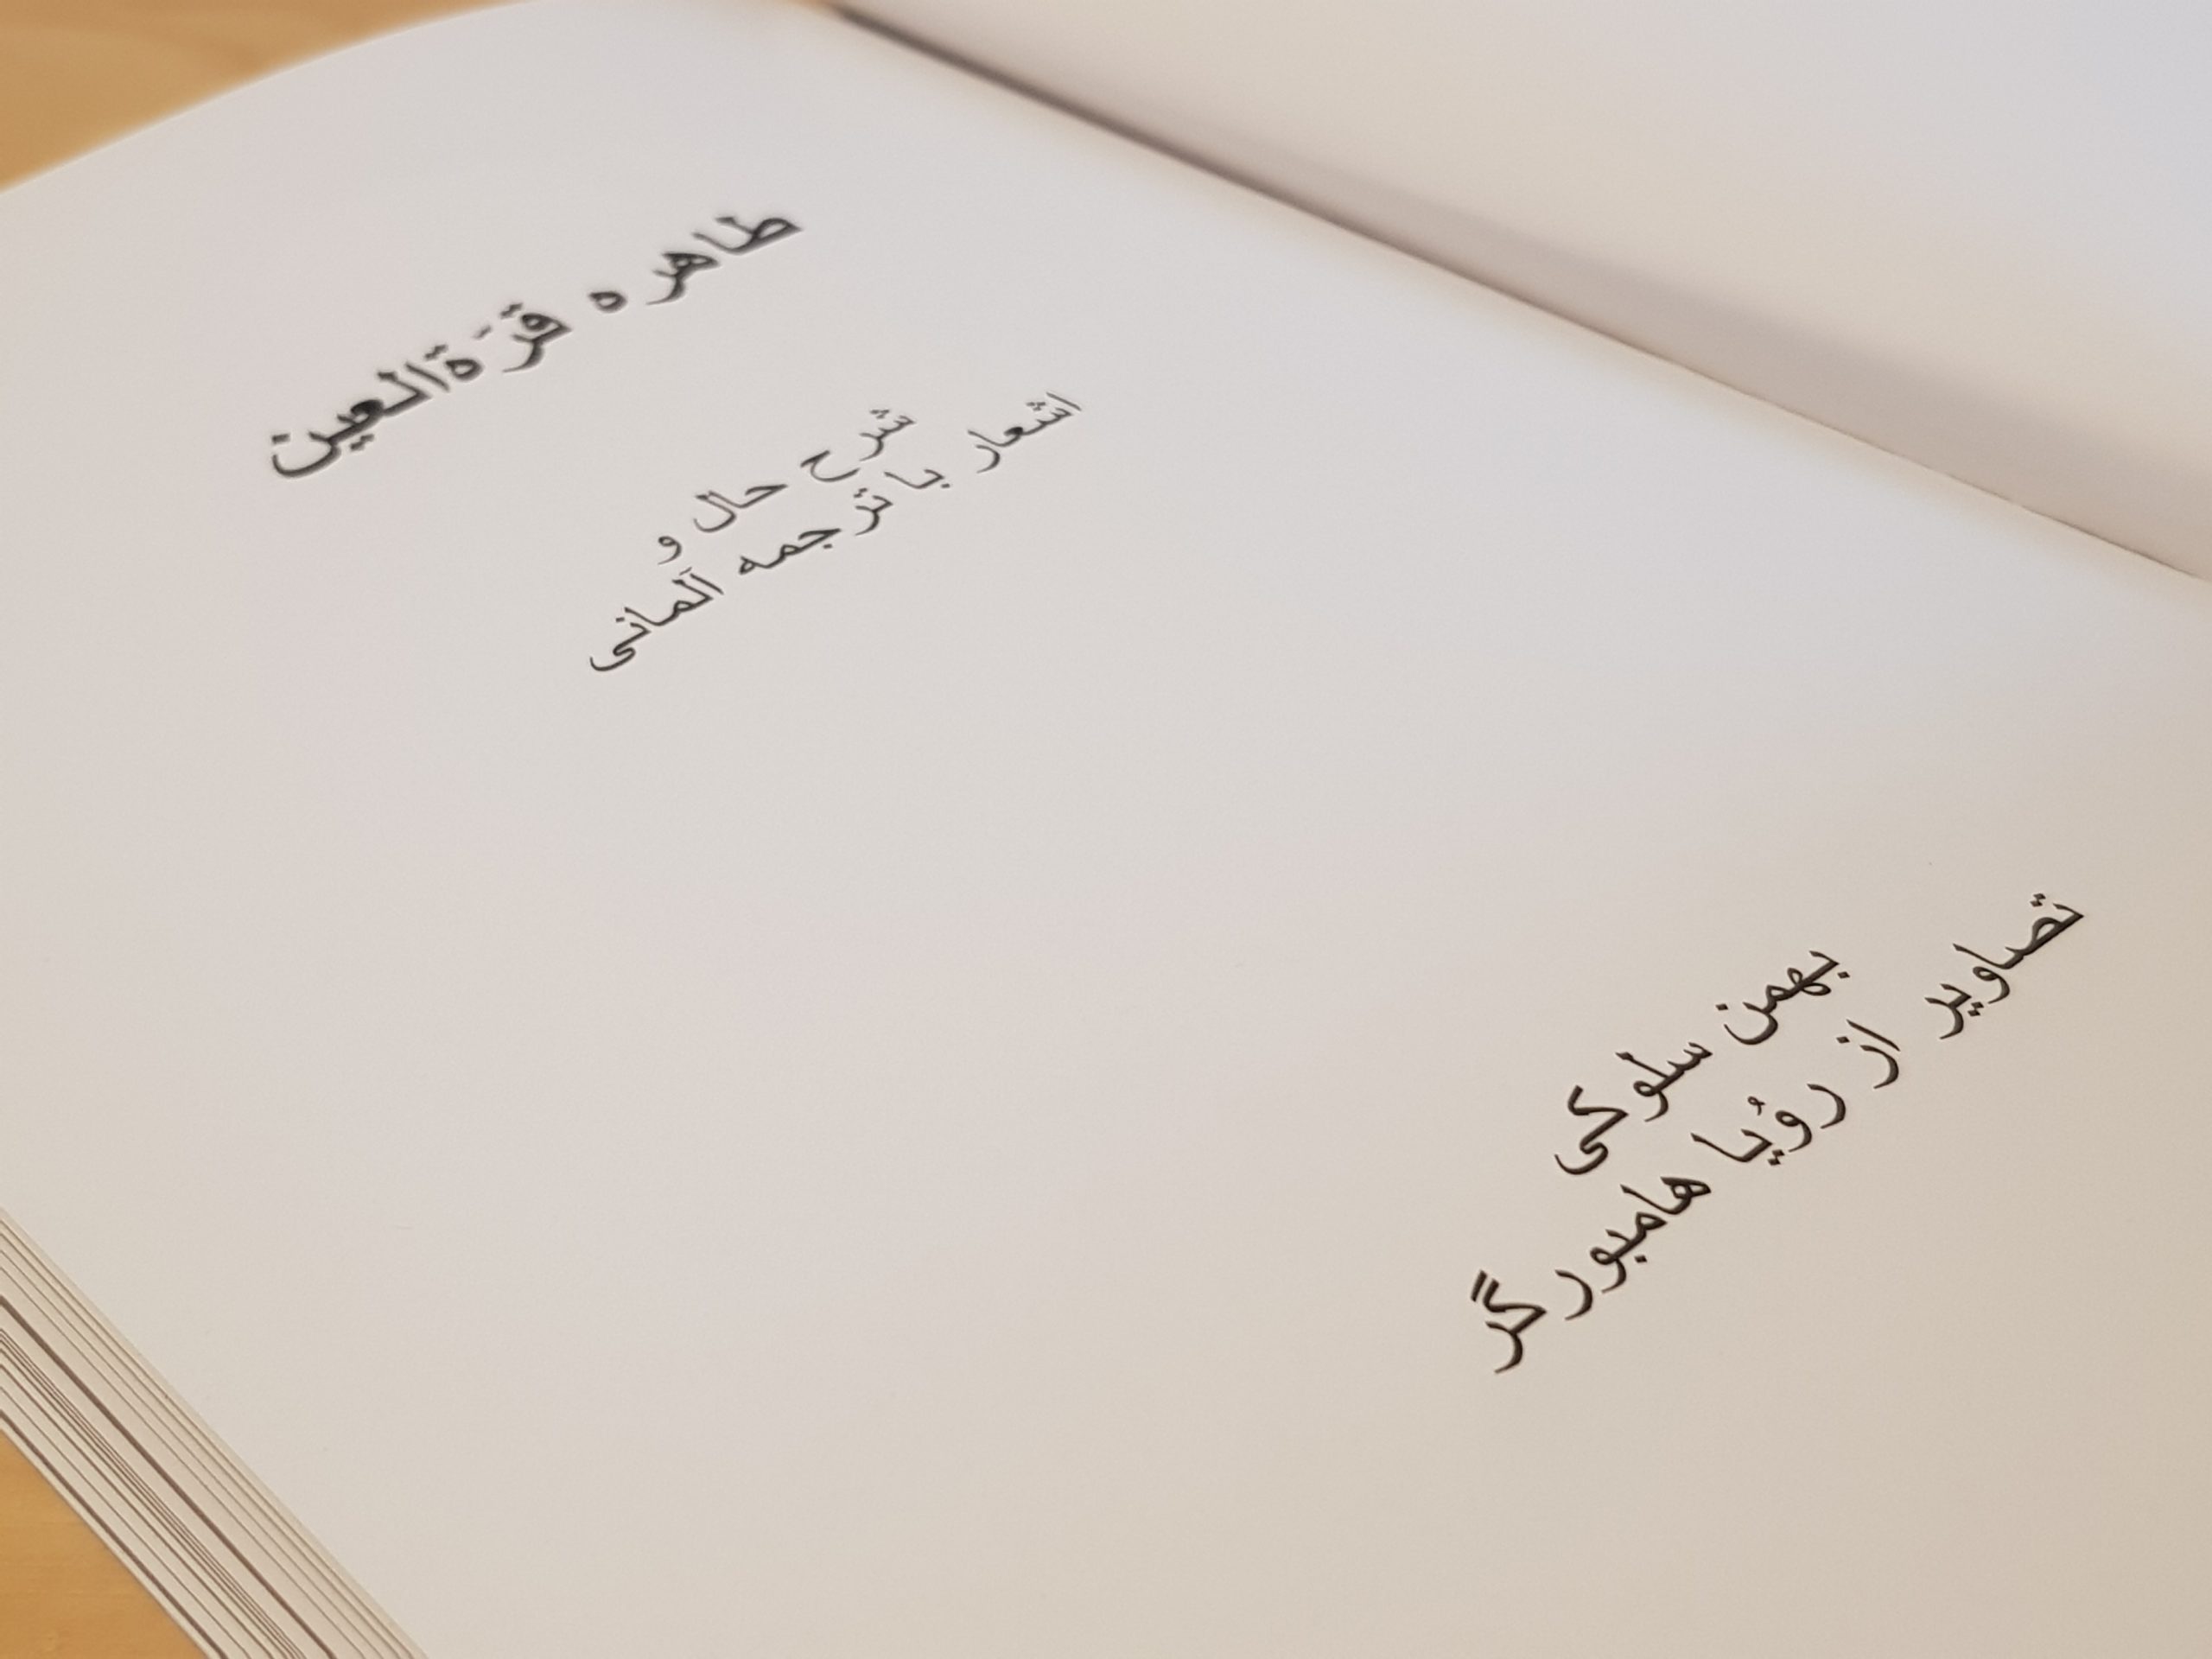 طاهره قرّةالعین
شرح حال و
اشعار با ترجمه آلمانی
بهمن سلوکی
تصاویر از رؤیا هامبورگر